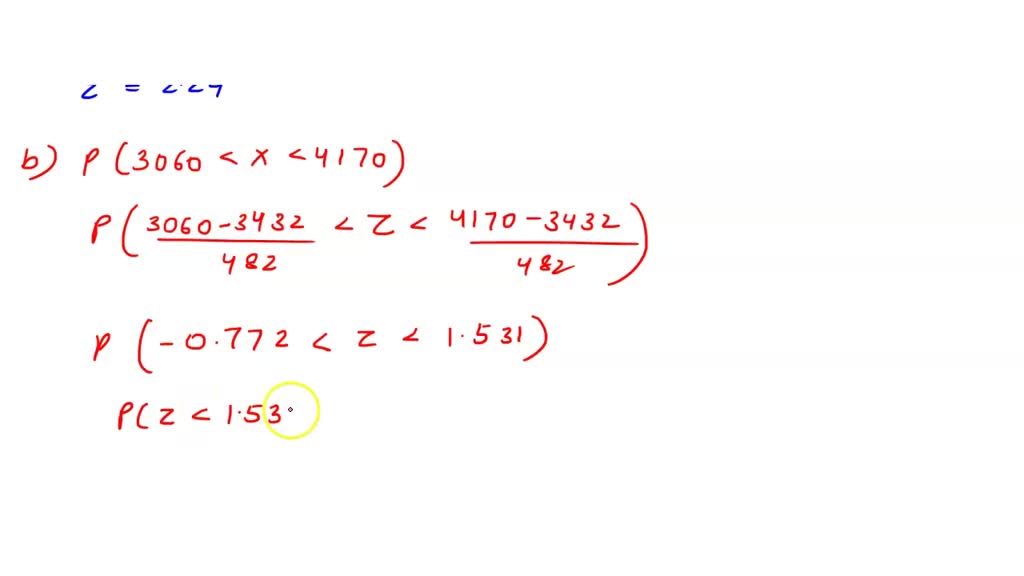 b) P(3060 < x < 4170)
P(3060-3432/482 < Z < 4170-3432/482)
P(-0.772 < z < 1.531)
P(z < 1.53